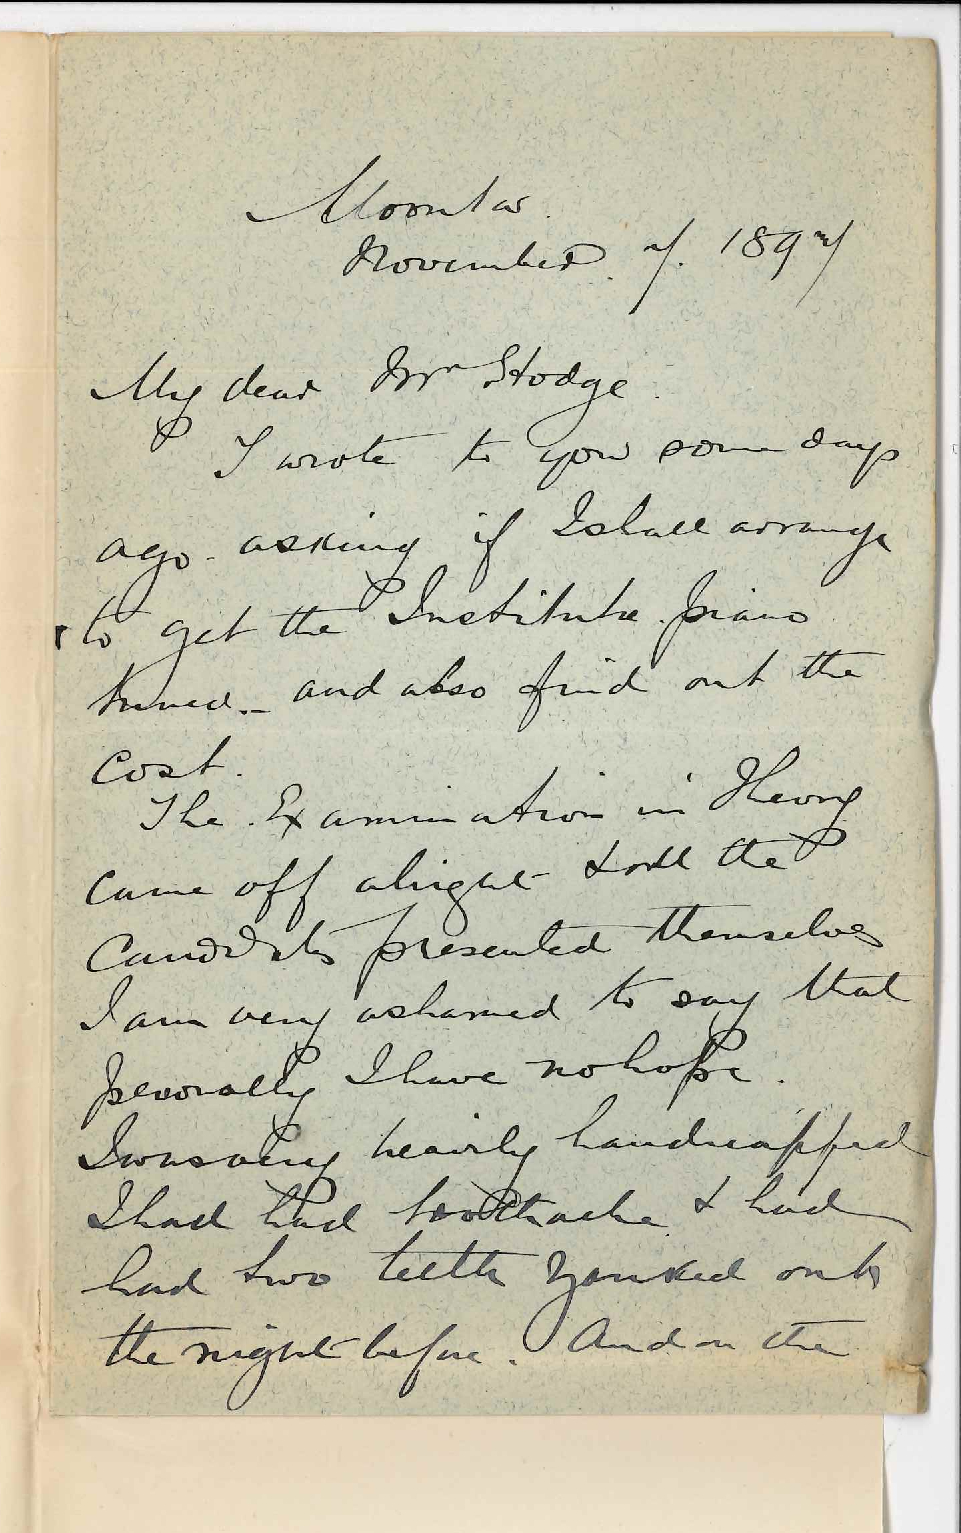 Moonta.
November. 7. 1897
My dear Mr Hodge.
I wrote to you some days
ago. asking if I shall arrange
to get the Institute piano
tuned – and also find out the
cost.
The Examination in Theory
came off alright & all the
Candidates presented themselves
I am very ashamed to say that
personally I have no hope.
I was very heavily handicapped
I had had toothache & had
had two teeth yanked out
the night before. And on the